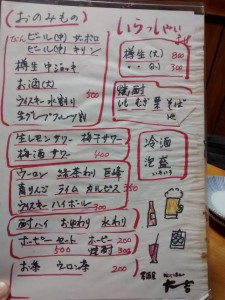 (おのみもの)
びん ビール(中) サッポロ
ビール(中) キリン
樽生 中ジョッキ
お酒(大)
ウイスキー水割り
生グレープフルーツ
500
生レモンサワー 梅干サワー
梅酒サワー 400
ウーロン 緑茶わり 巨峰
青リンゴ ライム カルピス
ウイスキーハイボール 350
酎ハイ お湯わり 水わり
ホッピーセット ホッピー 200
500 焼酎 300
お茶 ウーロン茶
200
いらっしゃい
樽生(大) 800
〃 (小) 300
焼酎
いも むぎ 栗 そば
冷酒
泡盛
いろいろ
居酒屋
大吉